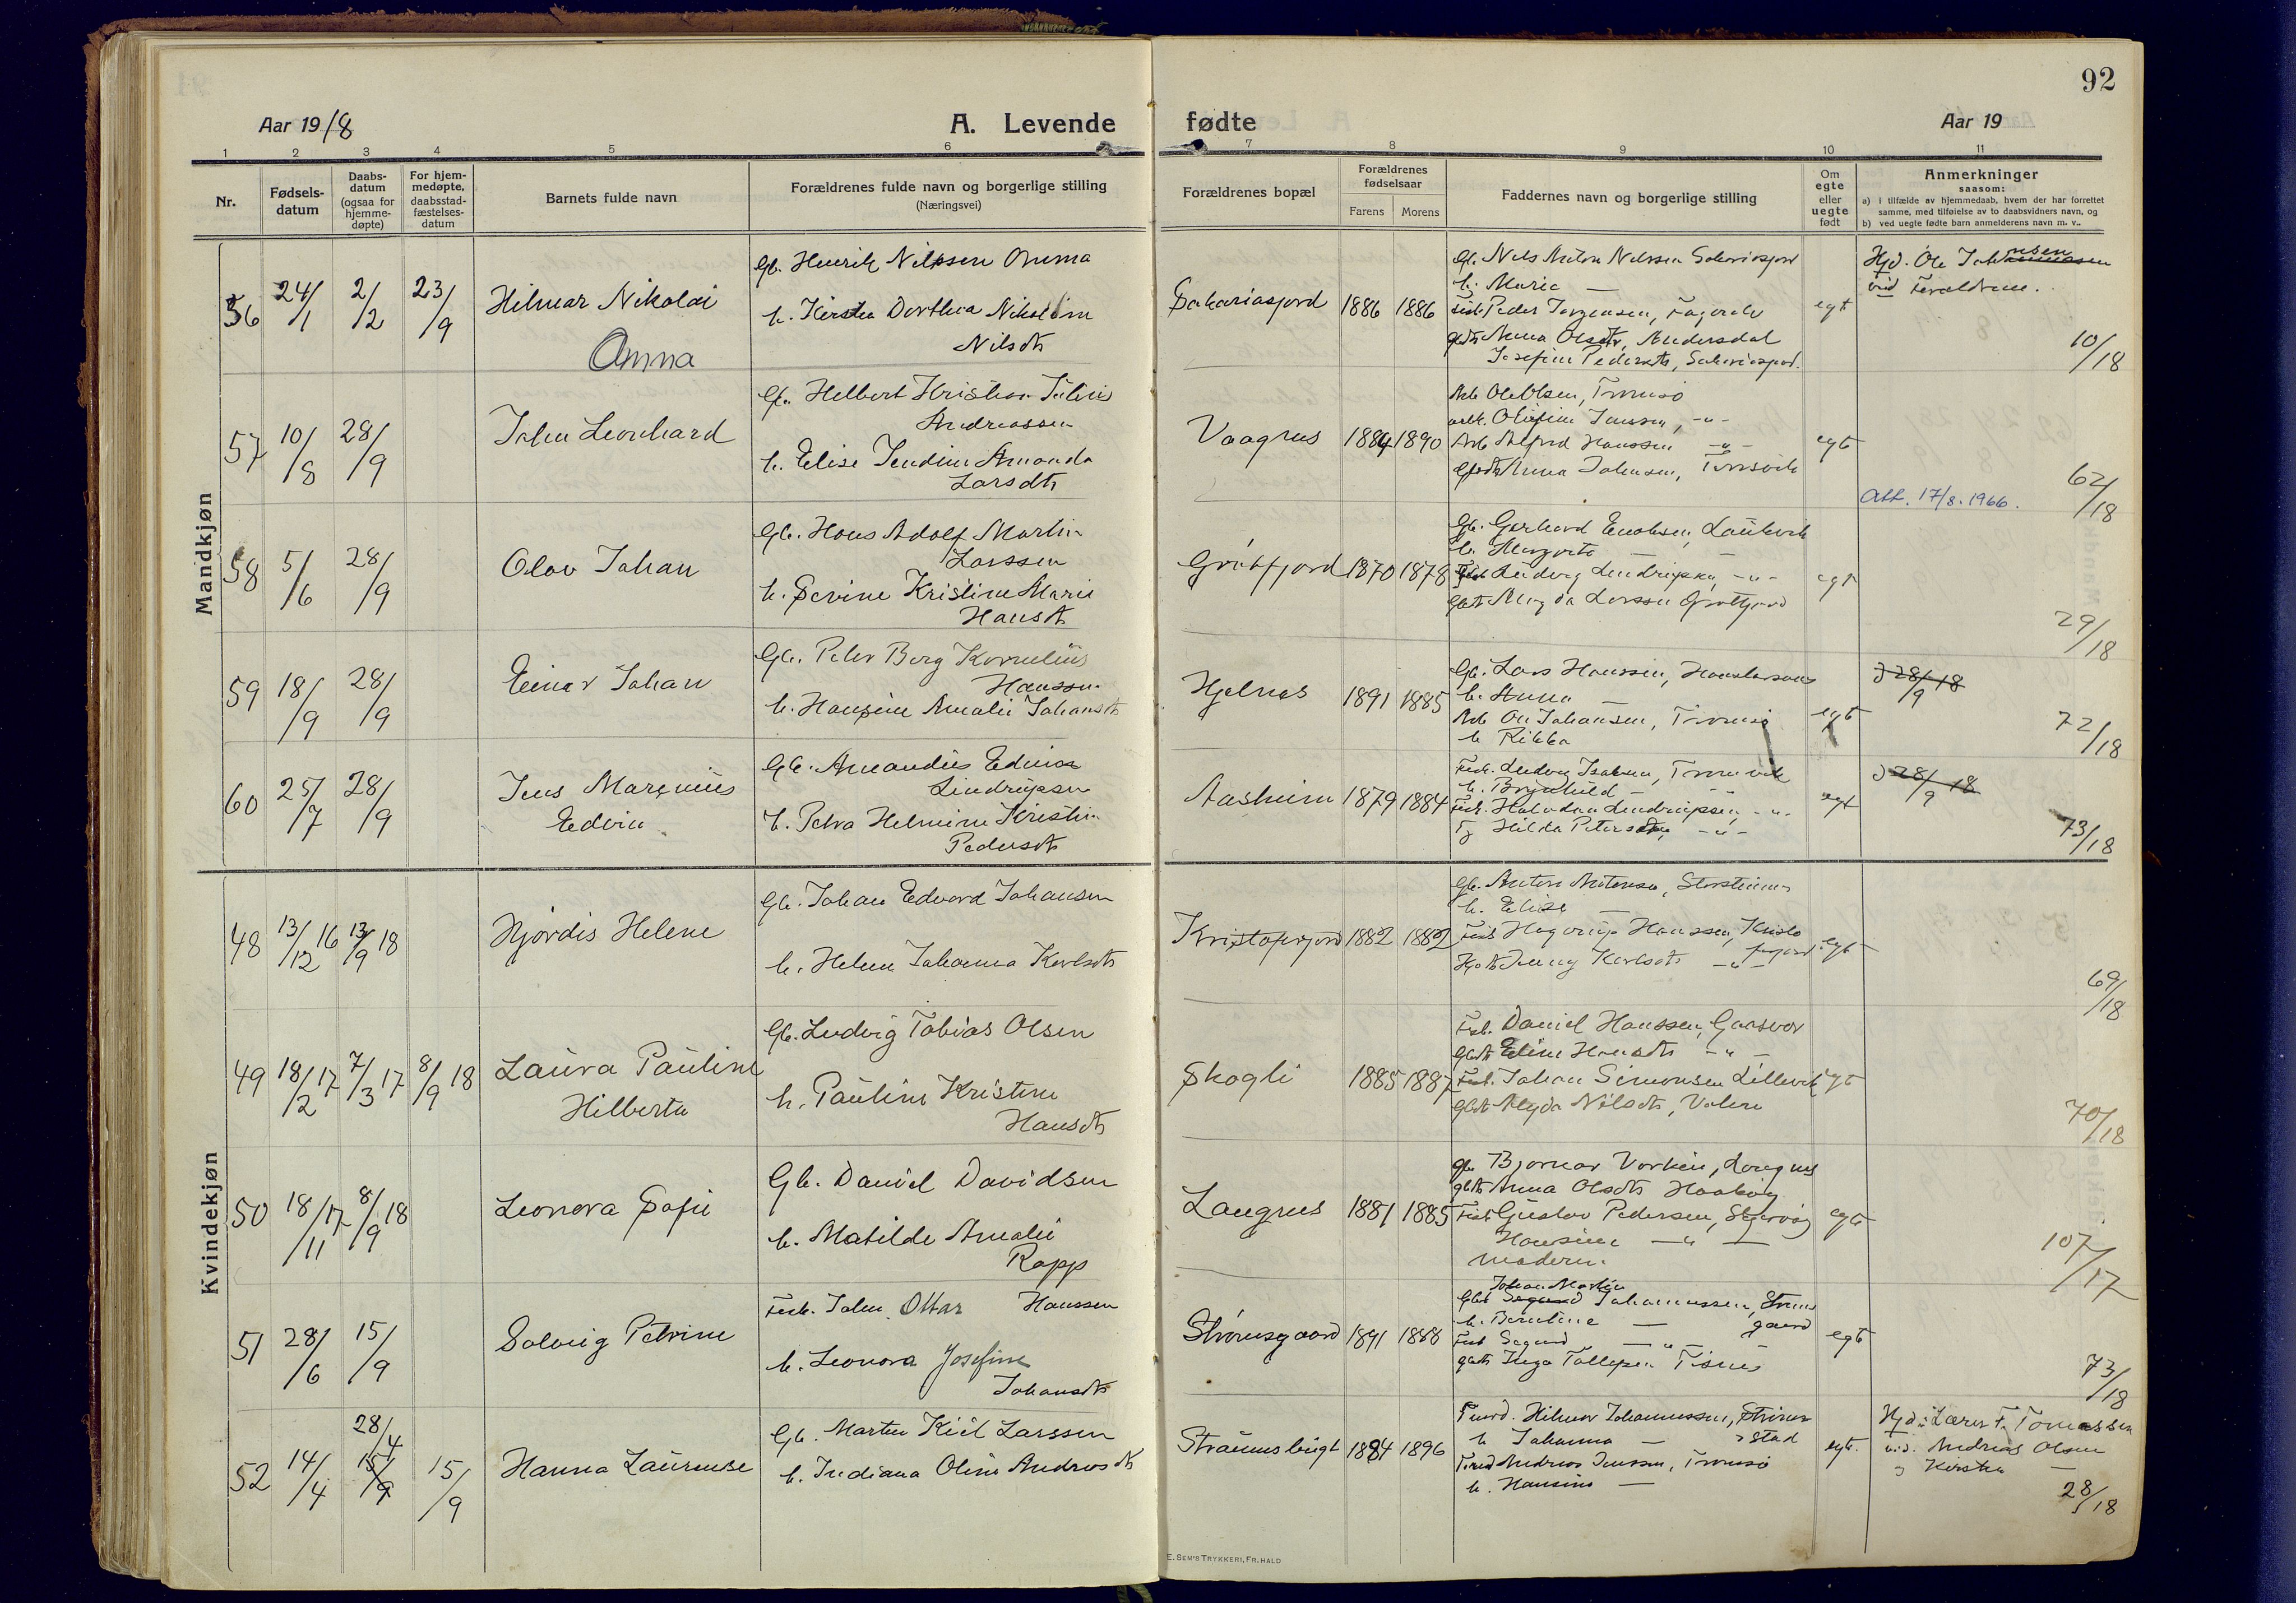 92
Aar 1918
A. Levende fødte
Aar 19
1 2 3 4 5 6 7 8 9 10 11
Nr.
Fødsels-
datum
Daabs-
datum
(ogsaa for
hjemme-
døpte)
For hjem-
medøpte,
daabsstad-
fæstelses-
datum
Barnets fulde navn
Forældrenes fulde navn og borgerlige stilling
(Næringsvei)
Forældrenes bopæl
Forældrenes
fødselsaar
Farens Morens
Faddernes navn og borgerlige stilling
Om
egte
eller
uegte
født
Anmerkninger
saasom:
a) i tilfælde av hjemmedaab, hvem der har forrettet
samme, med tilføielse av to daabsvidners navn, og
b) ved uegte fødte barn anmelderens navn m. v..
Mandkjøn
56 24/1 2/2 23/9
Hilmar Nikolai
Onma
Gb. Henrik Nilssen Onma
h. Kirsten Dorthea Nikoline
Nilsdtr
Sakariasjord 1886 1886
Gb. Nils Anton Nilssen Sakariasjord
h. Marie —
Fisk. Peder Jørgensen,
Anna Olsdtr, Andersdal
Josefine Pedersdtr, Sakariasjord.
egt
Hjd. Ole Johnsen
ved Forældrene.
10/18
57 10/8 28/9
John Leonhard
Gb. Helbert Kristian Julius
Andreassen
h. Elise Jendine Amanda
Larsdtr
Vaagnes 1884 1890
Arb. Ole Olsen, Tromsø
Olufine Jensen, -"-
Arb. Alfred Hanssen -"-
Anna Johnsen, Tromsvik
egt
Att. 17/8.1966.
62/18
58 5/6 28/9
Olav Johan
Gb. Hans Adolf Martin
Larssen
h. Sevine Kristine Marie
Hansdtr
Grøtfjord 1870 1878
Gb. Gerhard Enoksen, Laukvik
h. Margrete — —
Ludvig Lindrupsen, -"-
Magda Larssen Grøtfjord
egt
29/18
59 18/9 28/9
Einar Johan
Gb. Peter Berg Kornelius
Hanssen
h. Hansine Amalie Johansdtr
Hjelnes 1891 1885
Gb. Lars Hanssen,
h. Anna —
Arb. Ole Johansen, Tromsø
h. Rikka
egt
28/9 18
72/18
60 25/7 28/9
Jens Marenius
Edvin
Gb. Amandus Edvin
Lindrupsen
h. Petra Helmine Kristine
Pedersdtr
Aasheim 1879 1884
Fisk. Ludvig Isaksen, Tromvik
h. Brynhild — "
Fisk. Halvdan Lindrupsen, -"-
Hilda Petersdtr, -"-
egt
28/9 18
73/18
Kvindekjøn
48 13/12 16 13/9 18
Hjørdis Helene
Gb. Johan Edvard Johansen
h. Helene Johanna Karlsdtr
Kristoferjord 1882 1882
Gb. Anton Antonsen, Storsteinnes
h. Elise —
Fisk. Hagerup Hanssen, Kristo
ferjord
Jenny Karlsdtr -"-
egt
69/18
49 18/2 17 7/3 17 8/9 18
Laura Pauline
Hilberta
Gb. Ludvig Tobias Olsen
h. Pauline Kristine
Hansdtr
Skogli 1885 1887
Fisk. Daniel Hanssen,
Eline Hansdtr -"-
Fisk. Johan Simonsen Lillevik
Alyda Nilsdtr,
egt
70/18
50 18/11 17 8/9 18
Leonora Sofie
Gb. Daniel Davidsen
h. Matilde Amalie
Rapp
Langnes 1881 1885
Gb. Bjornar Vorkin, Langnes
Anna Olsdtr
Fisk. Gustav Pedersen, Skjervøy
Hansine — " —
moderen.
egt
107/17
51 28/6 15/9
Solveig Petrine
Fisk. John Ottar Hanssen
h. Leonora Josefine
Johansdtr
Strømsgaard 1891 1888
Johan Martin
Johannessen, Strøms
gaard
h. Berntine —
Fisk. Sigurd — " —
Inga Tollefsen Tisnes
egt
73/18
52 14/4 28/4 15/9 15/9
Hanna Laurense
Gb. Martin Kiil Larssen
h. Indiana Oline Andreasdtr
Straumsbugt 1884 1896
Hilmar Johannessen, Strøm
stad
h. Johanna —
Andreas Jenssen, Tromsø
h. Hansine —
egt.
Hjd.: Lærer F. Tomassen
vid. Andreas Olsen
Kirsten —
28/18
E. SEM'S TRYKKERI, FR.HALD